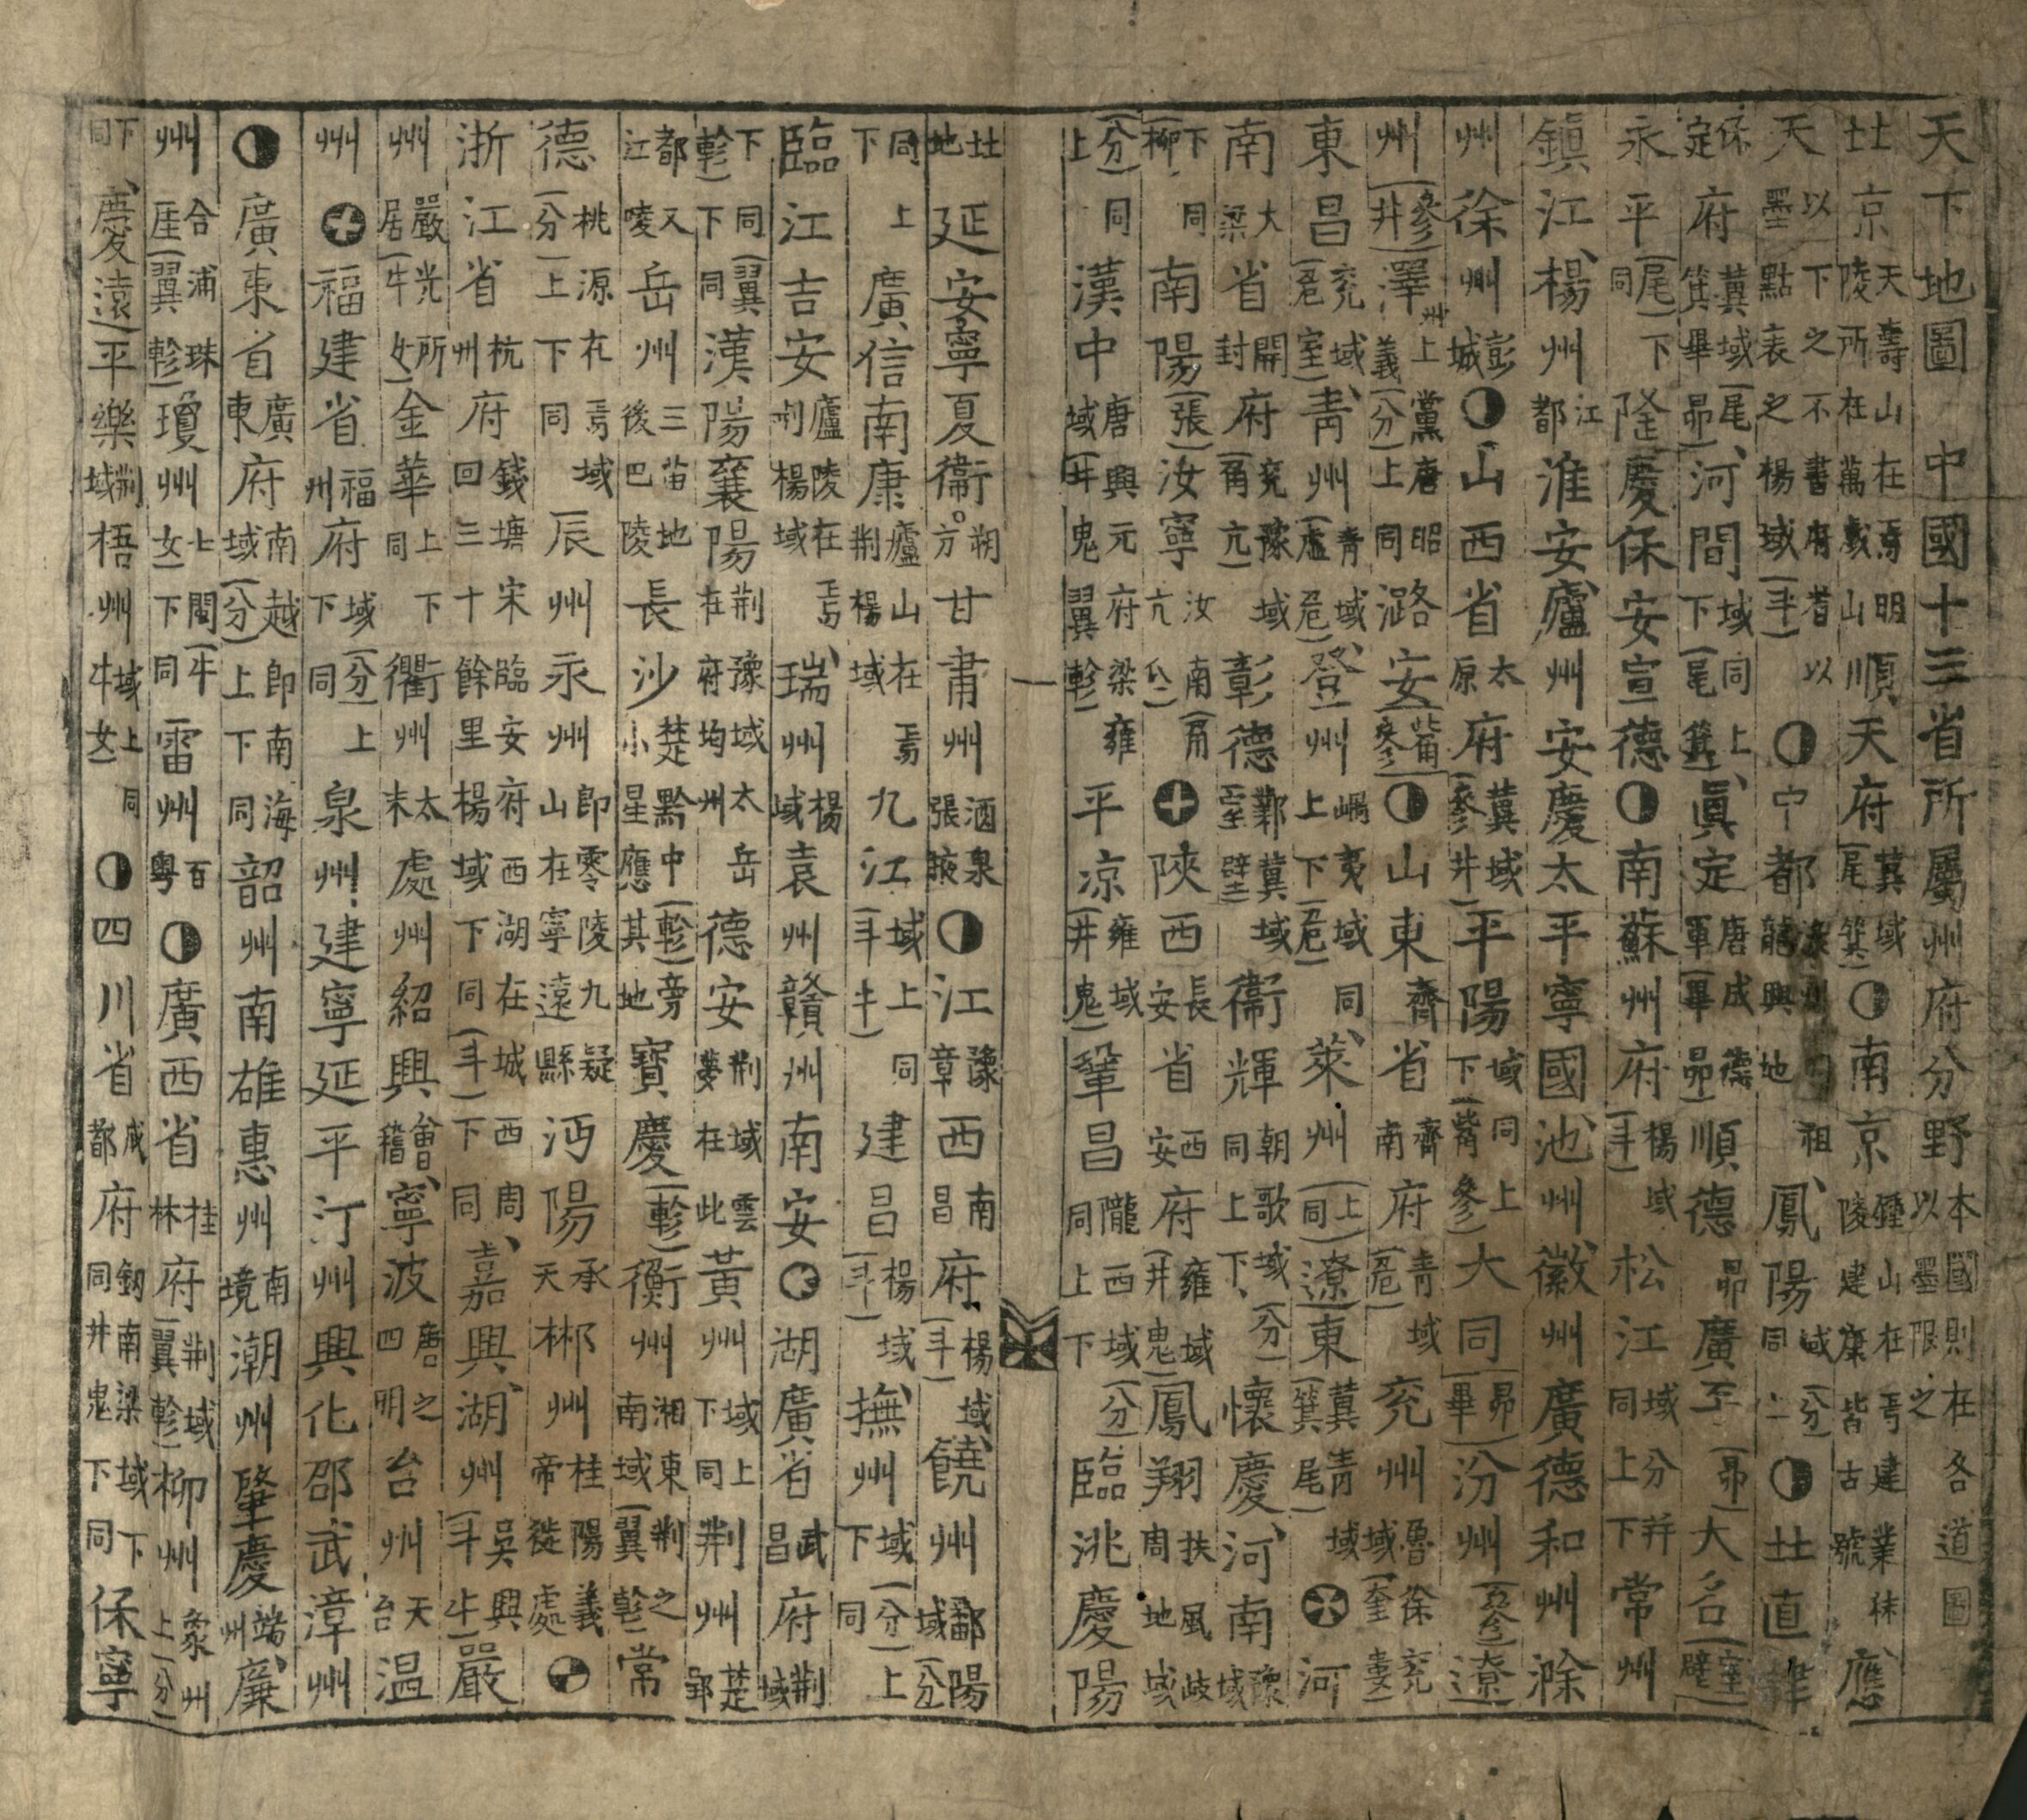 天下地圖　中國十三省所屬州府分野本國則在各道圖以墨限之
北京天壽山在焉明陵所在萬歲山順天府冀域(尾箕)◐南京鍾山在焉建業秣陵建康皆古號應
天以下之不書府者以墨點表之楊域(斗)◑中都濠州祖龍興地鳳陽域(分)同上◑北直隸
保定府冀域(尾箕畢昴)河間域同上下(尾箕)眞定唐成德軍(畢昴)順德昴廣平(昴)大名(室壁)
永平(尾)下同隆慶保安宣德◑南蘇州府楊域(斗)松江域分并同上下常州
鎮江楊州江都淮安廬州安慶太平寧國池州徽州廣德和州滁
州徐州彭城◑山西省太原府冀域(參井)平陽域同上下(觜參)大同(昴畢)汾州(參)遼
州(參井)澤州上黨唐昭義(分)上同潞安(觜參)◑山東齊省濟南府青域(危)兗州魯徐兗域(奎婁)
東昌兗域(危室)靑州青域(虛危)登州嵎夷域同上下(危)萊州(上同)遼東冀青域(箕尾)河
南省大梁開封府兗豫域(角亢)彰德鄴冀域(室壁)衛輝朝歌域(分)同上下懷慶河南豫域
下同(柳)南陽(張)汝寧汝南(角亢分)陜西長安省西安府雍域(井鬼)鳳翔扶風岐周地域
(分)同上漢中唐興元府梁雍域(井鬼翼軫)平凉雍域(井鬼)鞏昌隴西域(分)同上下臨洮慶陽
一
北地延安寧夏衛。朔方甘肅州酒泉張掖◑江西豫章南昌府楊域(斗)饒州鄱陽域(分)
同上下廣信南康廬山在焉荆楊域九江域上同(斗牛)建昌楊域(斗)撫州域(分)上下同
臨江吉安廬陵在焉荆楊域瑞州楊域袁州贛州南安湖廣省武昌府荆域
下同(翼軫)下同漢陽襄陽荆豫域太岳在府均州德安荆域雲夢在此黃州域上下同荆州楚郢
都又江陵岳州三苗地後巴陵長沙楚黔中(軫)旁小星應其地寶慶(軫)衡州湘東荆之南域(翼軫)常
德桃源在焉域(分)上下同辰州永州即零陵九疑山在寧遠縣沔陽承天郴州桂陽義帝徙處
浙江省杭州府錢塘宋臨安府西湖在城西周回三十餘里楊域下同(斗)下同嘉興湖州吳興(斗牛)嚴
州嚴光所居(牛女)金華上下同衢州太末處州紹興會稽寧波唐之四明台州天台温
州福建省福州府域(分)上下同泉州建寧延平汀州興化邵武漳州
◑廣東省廣東府南越即南海域(分)上下同韶州南雄惠州南境潮州肇慶端州廉
州合浦珠厓(翼軫)瓊州上閩(牛女)下同雷州百粵◑廣西省桂林府荆域(翼軫)柳州象州上(分)
下同慶遠平樂荆域梧州域上同牛女◑四川省成都府劒南梁域下同井鬼下同保寧